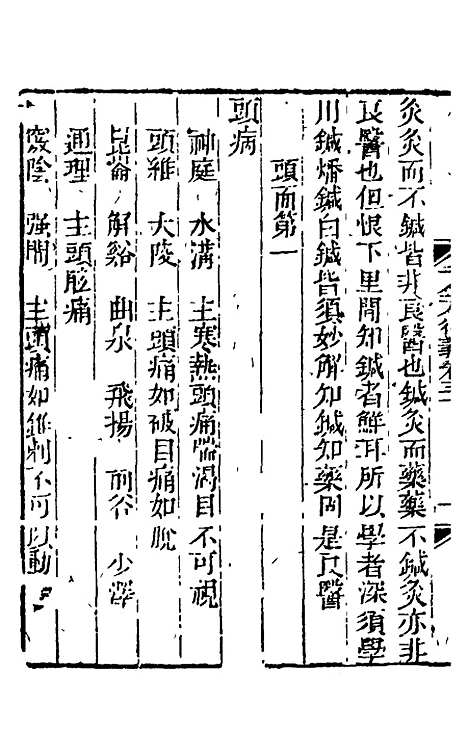 灸灸而不鍼皆非良醫也鍼灸而藥藥不鍼灸亦非
良醫也但恨下里間知鍼者鮮耳所以學者深須學
用鍼燔鍼白鍼皆須妙解知鍼知藥固是良醫
頭面第一
頭病
神庭 水溝 主寒熱頭痛喘渴目不可視
頭維 大陵 主頭痛如破目痛如脫
昆崙 解谿 曲泉 飛揚 前谷 少澤
通理 主頭眩痛
竅陰 强間 主頭痛如錐刺不可以動